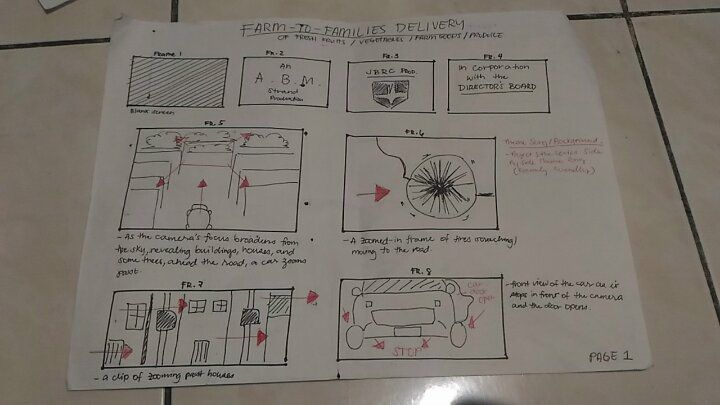 FARM-TO-FAMILIES DELIVERY
OF FRESH FRUITS / VEGETABLES / FARM GOODS / PRODUCE
Frame 1
Blank screen
FR. 2
An
A. B. M.
Strand
Production
FR. 3
JBRC PROD.
FR. 4
In Corporation
with the
DIRECTORS BOARD
FR. 5
- As the camera's focus broadens from
the sky, revealing buildings, houses, and
some trees, ahead the road, a car zooms
past.
FR. 6
- A zoomed-in frame of tires screeching/
moving to the road.
Theme Song/Background:
Side
by Side Theme Song
FR. 7
- a clip of zooming past houses
FR. 8
car
door
open
STOP
- front view of the car as it
stops in front of the camera
and the door opens
PAGE 1